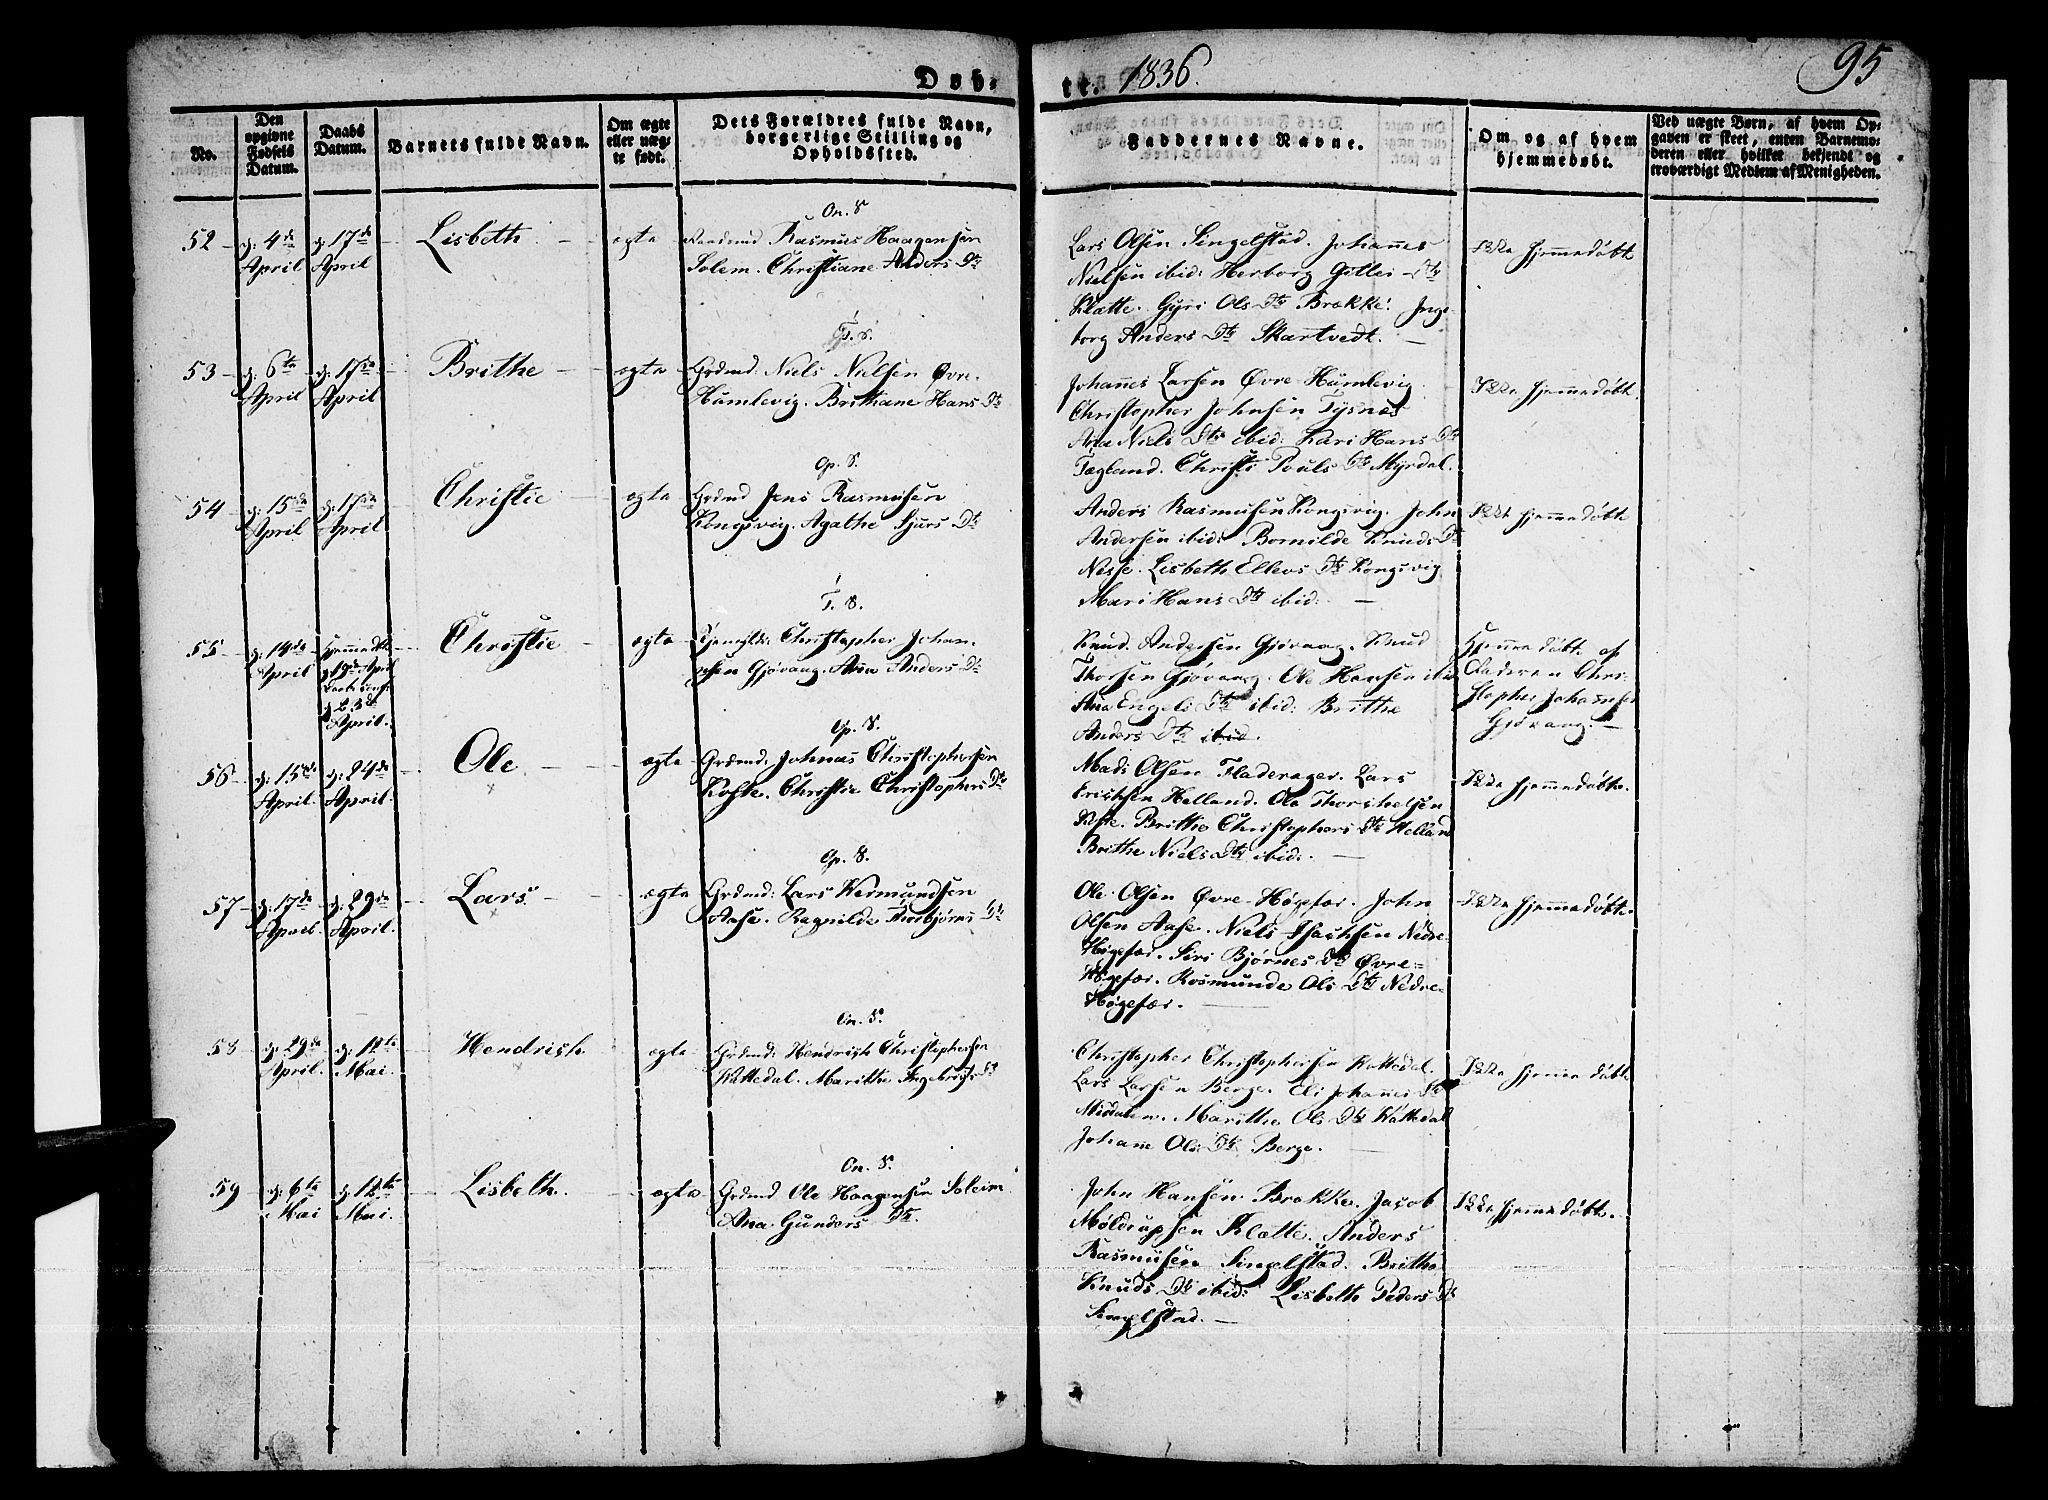 Døb-
te. 1836.
95
No.
Den opgivne Fødsels Datum.
Daabs Datum.
Barnets fulde Navn.
Om ægte eller uægte født.
Dets Forældres fulde Navn, borgerlige Stilling og Opholdssted.
Faddernes Navne.
Om og af hvem hjemmedøbt.
Ved uægte Børn, af hvem Opgaven er skeet, enten Barnemoderen eller hvilket bekjendt og troværdigt Medlem af Menigheden.
On. S
52 d: 4de April d: 17de April Lisbeth ægte Rasmus Haagensen
Solem. Christiane Anders Dtr
Lars Olsen Singelstad. Johannes
Nielsen ibid: Herborg Dtr
Klætte. Gyri Ols Dtr Brække. Inge-
borg Anders Dtr Skartvedt.
Ikke hjemmedøbt
T. S.
53 d: 6te April d: 17de April Brithe ægte Grdmd: Niels Nielsen Øvre
Humlevig. Brithane Hans Dtr
Johannes Larsen Øvre Humlevig.
Christopher Johnsen Tysnæs
Ana Niels Dtr ibid: Kari Hans Dtr
Tægland. Christi Pouls Dtr Myrdal.
Ikke hjemmedøbt
Op. S.
54 d: 15de April d: 17de April Christie ægte Grdmd Jens Rasmusen
Kongsvig. Agathe Sjurs Dtr
Anders Rasmusen Kongsvig. John
Andersen ibid: Bornilde Knuds Dtr
Nesse. Lisbeth Ellevs Dtr Kongsvig
Mari Hans Dtr ibid:
Ikke hjemmedøbt
T. S.
55 d: 14de April Hjemmedbt d 19de April d 23de April. Christie ægte Christopher Johan-
sen Gjøvaag. Ana Anders Dtr
Knud Andersen Gjøvaag. Knud
Thorsen Gjøvaag. Ole Hansen ibid
Ana Engels Dtr ibid: Brithe
Anders Dtr ibid.
Hjemmedøbt af
Faderen Chri-
stopher Johannesen
Gjøvaag.
Op. S.
56 d: 15de April. d: 24de April. Ole ægte Grdmd: Johnas Christophersen
Kofte. Christie Christophers Dtr
Mads Olsen Fladerager. Lars
Erichsen Helland. Ole Thorsinsen
Kofte. Brithe Christophers Dtr Helland
Brithe Niels Dtr ibid:
Ikke hjemmedøbt.
Op. S.
57 d: 17de April. d: 29de April. Lars. ægte Grdmd: Lars Vermundsen
Aase. Ragnilde Torbjørns Dtr
Ole Olsen Øvre-Høgefær. John
Olsen Aase. Niels Isachsen Nedre-
Høgefær. Siri Bjørnes Dtr Øvre-
Høgefær. Rosmunde Ols Dtr Nedre-
Høgefær.
Ikke hjemmedøbt.
On. S.
58 d: 29de April. d: 12te Mai. Hendrich ægte Grdmd: Hendrich Christophersen
Kattedal. Marithe Ingebrigts Dtr
Christopher Christophersen Kattedal.
Lars Larsen Berge. Eli Johannes Dtr
Middalen. Marithe Ols Dtr Kattedal
Johanne Ols Dtr Berge.
Ikke hjemmedøbt
On. S.
59 d: 6te Mai d: 12te Mai. Lisbeth. ægte Grdmd Ole Haagensen Soleim
Ana Gunders Dtr.
John Hansen Brække. Jacob
Møldrupsen Klætte. Anders
Rasmusen Singelstad. Brithe
Knuds Dtr ibid: Lisbethe Peders Dtr
Singelstad.
Ikke hjemmedøbt.